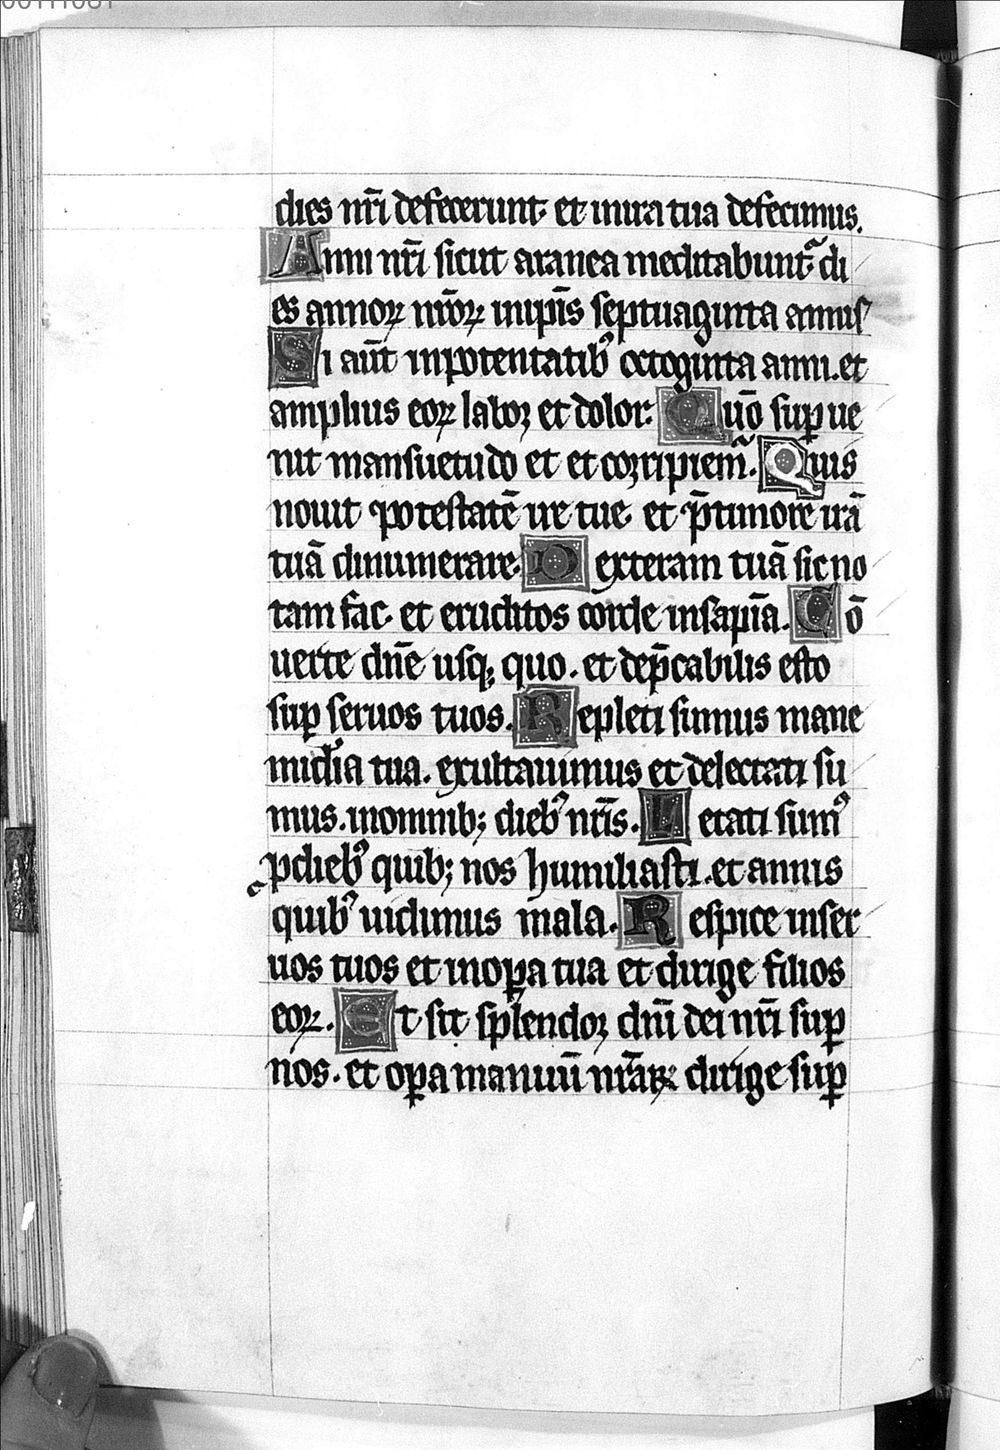 dies nr̃i defecerunt· et inira tua defecimus.
Anni nr̃i sicut aranea meditabunt᷑ di
es annoꝝ nr̃oꝝ inip̃is septuaginta annis
Si aut̃ inpotentatib᷒ octoginta anni. et
amplius eoꝝ laboꝛ et dolor· Quõ supue
nit mansuetudo et et coꝛripiem᷑. Quis
nouit potestatẽ ire tue· et p̃timore irã
tuã dinumerare· Dexteram tuã sic no
tam fac· et eruditos corde insapiã. Cõ
uerte dñe usqꝫ quo. et dep̃cabilis esto
suꝑ seruos tuos. Repleti sumus mane
mid̃ia tua. exultauimus et delectati su
mus. inomnibꝫ dieb᷒ nr̃is. Letati sum᷒
ꝓdieb᷒ quibꝫ nos humiliasti. et annis
quib᷒ uidimus mala. Respice inser
uos tuos et inoꝑa tua et dirige filios
eoꝝ. Et sit splendoꝛ dñi dei nr̃i suꝑ
nos. et oꝑa manuũ nr̃aꝝ dirige suꝑ